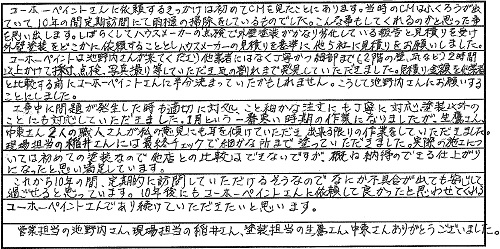 ユーホーペイントさんに依頼するきっかけは初めてCMを見たことにあります。当時のCMはふくろうが出
ていて10年の間定期訪問にて雨樋の掃除をしているものでした。こんな事もしてくれるのかと思った事
を思い出します。しばらくしてハウスメーカーの点検で外壁塗装がかなり劣化している報告と見積りを受け
外壁塗装をどこかに依頼することとしハウスメーカーの見積りを基準に他5社に見積りをお願いしました。
ユーホーペイントは池野内さんが来てくださり他業者にはなく丁寧かつ細部まで(2階の壁、瓦など)2時間
以上かけて採寸、点検、写真撮り等していただき瓦の割れまで発見していただきました。見積り金額を他業者
と比較する前にユーホーペイントさんに半分決まっていたかもしれません。こうして池野内さんにお願いする
ことにしました。
工事中に問題が発生した時も適切に対処し、こと細かな注文にも丁寧に対応、塗装以外の
ことにも対応していただきました。1月という一番寒い時期の作業になりましたが、生蕃さん、
中東さん2人の職人さんが私の意見にも耳を傾けていただき出来る限りの作業をしていただきました。
現場担当の稲井さんには最終チェックで細かな所まで塗っていただきました。実際の施工につ
いては初めての塗装なので他店との比較はできないですが、概ね納得のできる仕上がり
になったと思い満足しています。
これから10年の間、定期的に訪問していただけるそうなのでなにか不具合が出ても安心して
過ごせると思っています。10年後にもユーホーペイントさんに依頼して良かったと思わせてくれる
ユーホーペイントさんであり続けていただきたいと思います。
営業担当の池野内さん、現場担当の稲井さん、塗装担当の生蕃さん、中東さんありがとうございました。